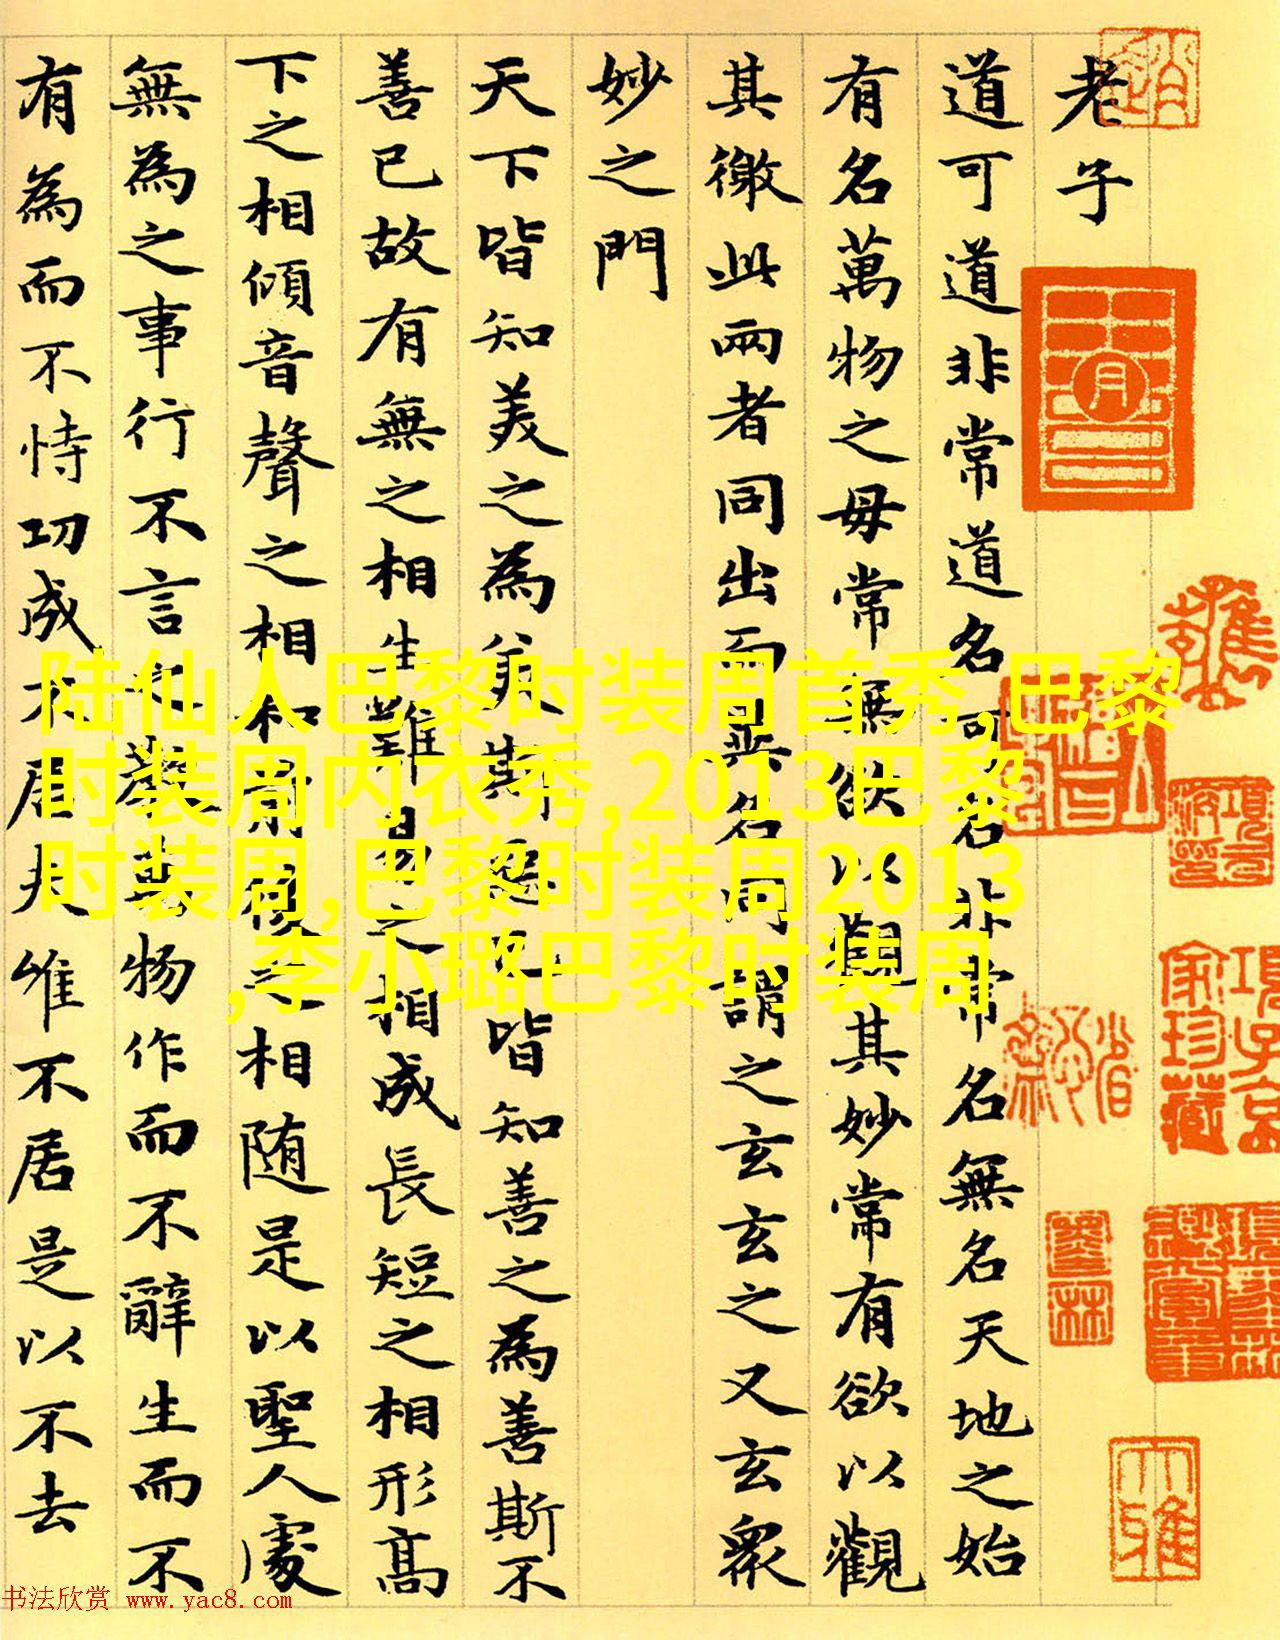 老子
道可道非常道名可名非常名無名天地之始
有名萬物之母常無欲以觀其妙常有欲以觀
其徼此兩者同出而異名同謂之玄玄之又玄衆
妙之門
天下皆知美之為美斯惡已皆知善之為善斯不
善已故有無之相生難易之相成長短之相形高
下之相傾音聲之相和前後之相随是以聖人處
無為之事行不言之教萬物作而不辭生而不
有為而不恃功成不居夫唯不居是以不去
陆仙人巴黎时装周首秀,巴黎
时装周内衣秀,2013巴黎
时装周,巴黎时装周2013
,李小璐巴黎时装周
項子京
家珍藏
大雅
书法欣赏 www.yac8.com